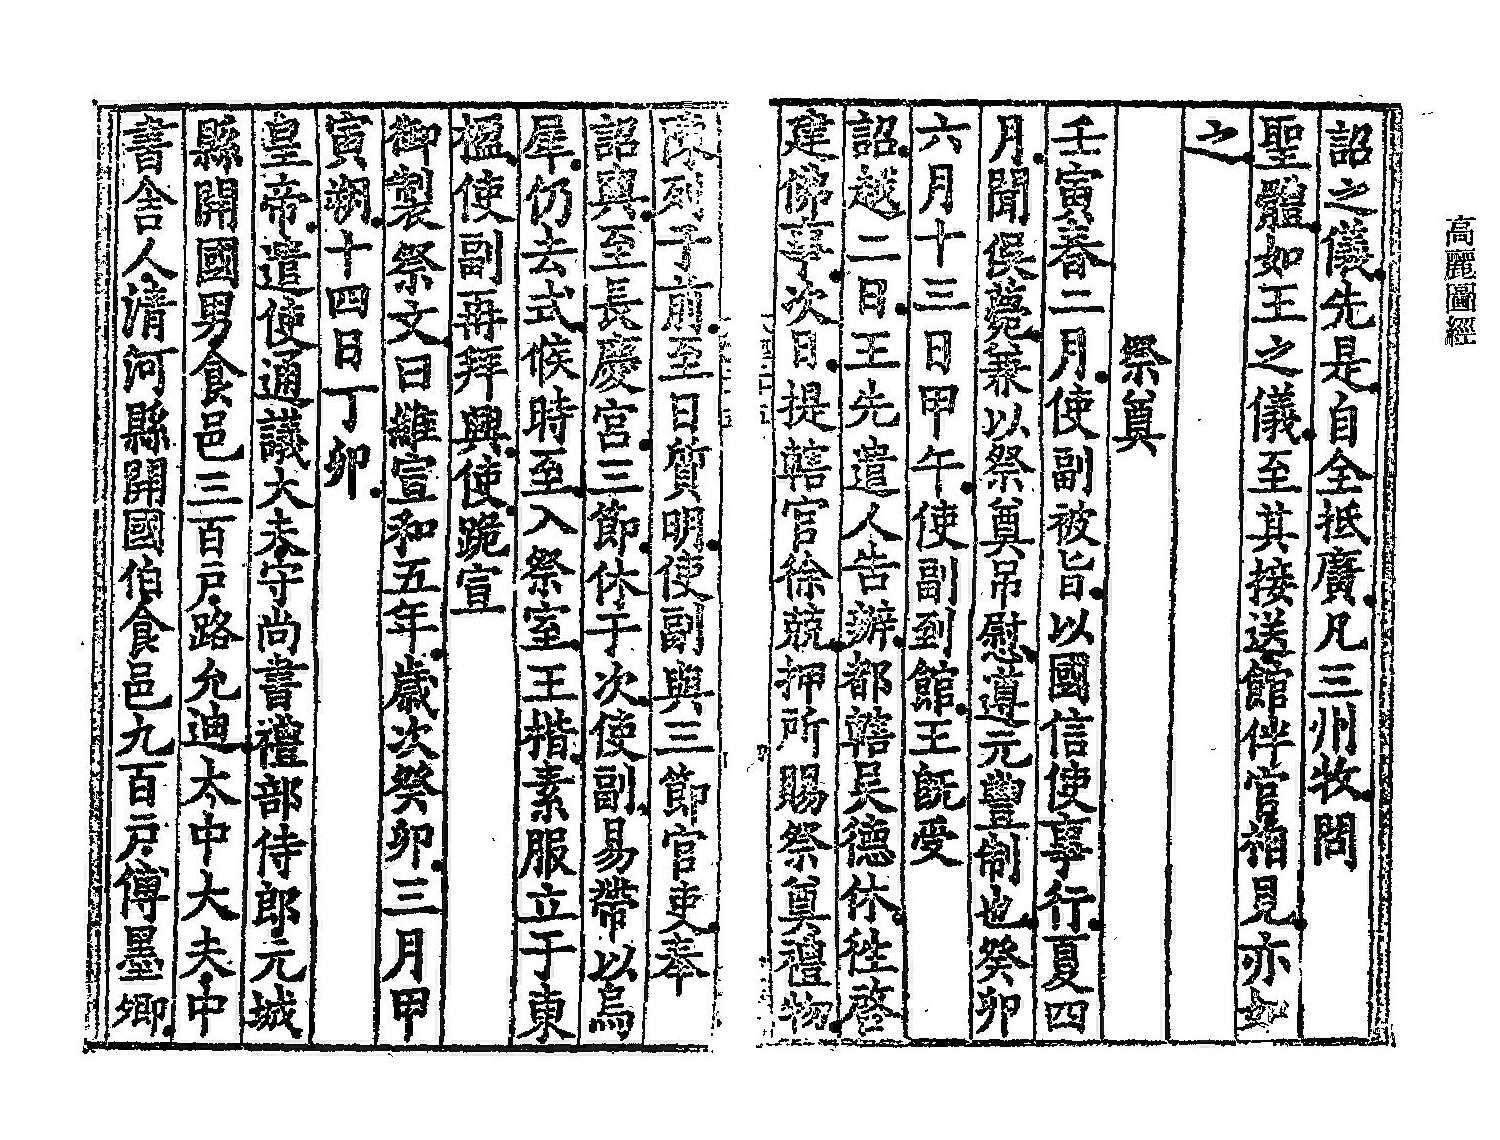 高麗圖經
詔之儀先是自全抵廣凡三州牧問
聖體如王之儀至其接送館伴官相見亦如
之
祭奠
壬寅春二月使副被旨以國信使事行夏四
月聞俁薨兼以祭奠吊慰遵元豐制也癸卯
六月十三日甲午使副到館王旣受
詔越二日王先遣人告辦都轄吳德休徃啓
建佛事次日提轄官徐兢押所賜祭奠禮物
陳列于前至日質明使副與三節官吏奉
詔輿至長慶宮三節休于次使副易帶以烏
犀仍去式候時至入祭室王揩素服立于東
楹使副再拜興使跪宣
御製祭文曰維宣和五年歲次癸卯三月甲
寅朔十四日丁卯
皇帝遣使通議大夫守尚書禮部侍郎元城
縣開國男食邑三百戶路允迪太中大夫中
書舍人清河縣開國伯食邑九百戶傅墨卿